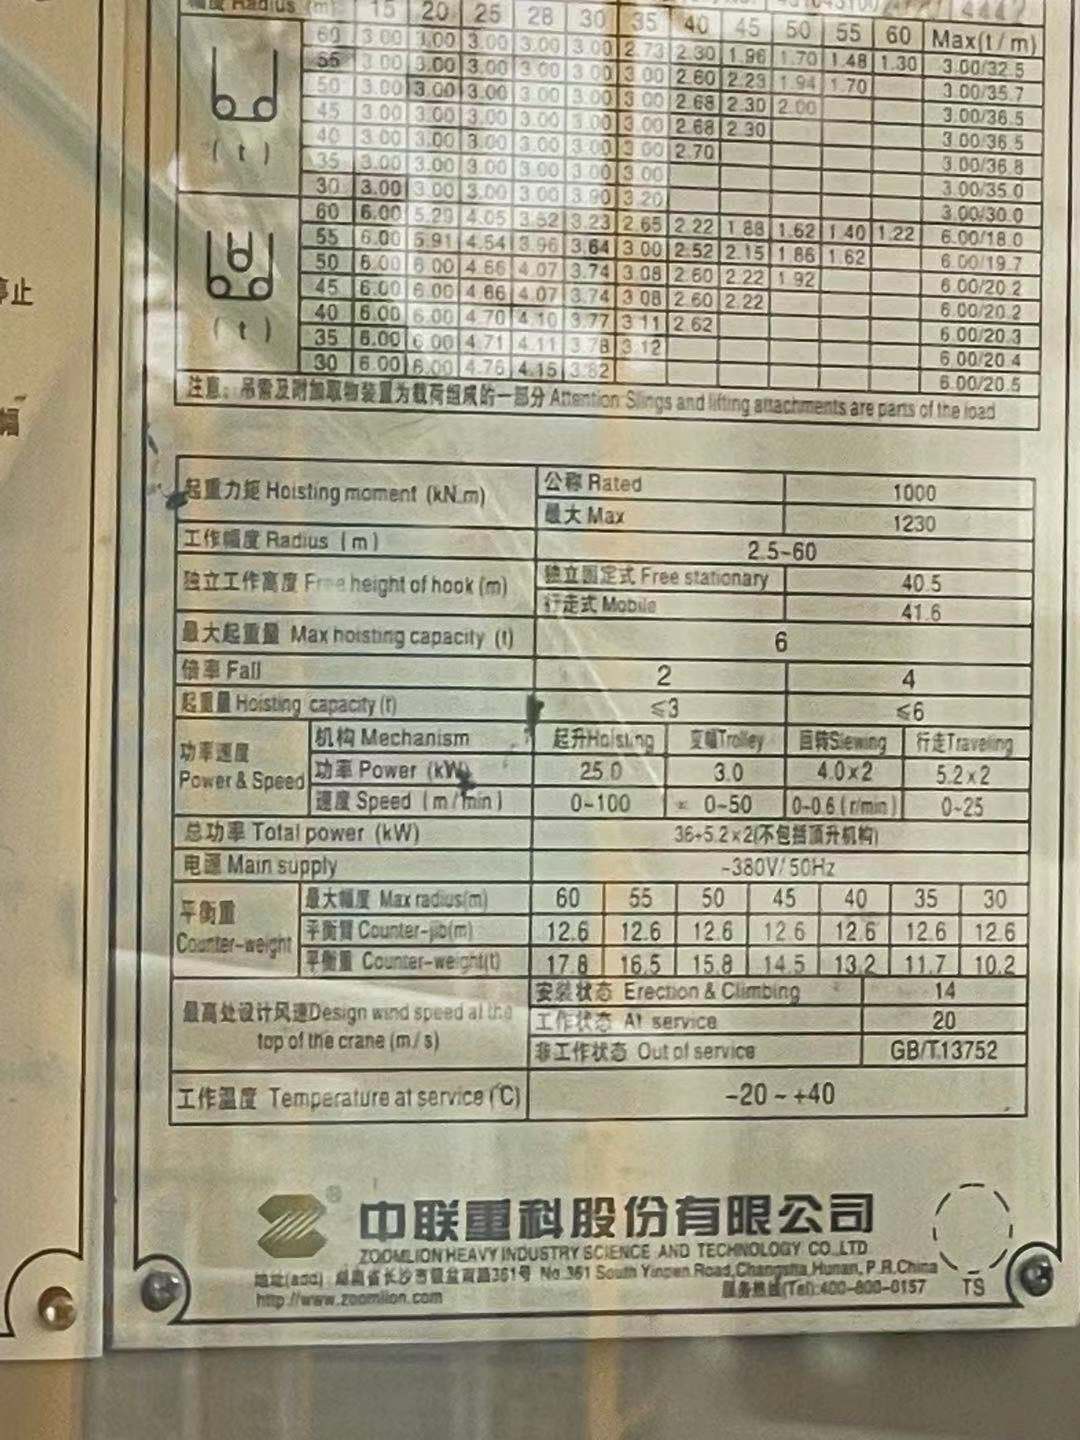 幅度 Radius (m) 15 20 25 28 30 35 40 45 50 55 60 Max(t/m)
60 3.00 3.00 3.00 3.00 3.00 2.73 2.30 1.96 1.70 1.48 1.30 3.00/32.5
55 3.00 3.00 3.00 3.00 3.00 3.00 2.60 2.23 1.94 1.70 3.00/35.7
50 3.00 3.00 3.00 3.00 3.00 3.00 2.68 2.30 2.00 3.00/36.5
45 3.00 3.00 3.00 3.00 3.00 3.00 2.68 2.30 3.00/36.5
40 3.00 3.00 3.00 3.00 3.00 3.00 2.70 3.00/36.8
(t)
35 3.00 3.00 3.00 3.00 3.00 3.00 3.00/35.0
30 3.00 3.00 3.00 3.00 3.00/30.0
60 6.00 5.29 4.05 3.52 3.23 2.65 2.22 1.88 1.62 1.40 1.22 6.00/18.0
55 6.00 5.91 4.54 3.96 3.64 3.00 2.52 2.15 1.86 1.62 6.00/19.7
50 6.00 6.00 4.66 4.07 3.74 3.08 2.60 2.22 1.92 6.00/20.2
45 6.00 6.00 4.66 4.07 3.74 3.08 2.60 2.22 6.00/20.2
40 6.00 6.00 4.70 4.10 3.77 3.11 2.62 6.00/20.3
(t)
35 6.00 6.00 4.71 4.11 3.78 3.12 6.00/20.4
30 6.00 6.00 4.76 4.15 3.82 6.00/20.5
注意：吊索及附加取物装置为载荷组成的一部分 Attention Slings and lifting attachments are parts of the load
停止
幅
起重力矩 Hoisting moment (kN.m) 公称 Rated 1000
最大 Max 1230
工作幅度 Radius (m) 2.5~60
独立工作高度 Free height of hook (m) 独立固定式 Free stationary 40.5
行走式 Mobile 41.6
最大起重量 Max hoisting capacity (t) 6
倍率 Fall 2 4
起重量 Hoisting capacity (t) ≤3 ≤6
功率速度 Power & Speed
机构 Mechanism 起升Hoisting 变幅Trolley 回转Slewing 行走Traveling
功率 Power (kW) 25.0 3.0 4.0×2 5.2×2
速度 Speed (m/min) 0~100 0~50 0~0.6 (r/min) 0~25
总功率 Total power (kW) 36+5.2×2(不包括顶升机构)
电源 Main supply ~380V/50Hz
平衡重 Counter-weight
最大幅度 Max radius(m) 60 55 50 45 40 35 30
平衡臂 Counter-jib(m) 12.6 12.6 12.6 12.6 12.6 12.6 12.6
平衡重 Counter-weight(t) 17.8 16.5 15.8 14.5 13.2 11.7 10.2
最高处设计风速Design wind speed at the
top of the crane (m/s)
安装状态 Erection & Climbing 14
工作状态 At service 20
非工作状态 Out of service GB/T13752
工作温度 Temperature at service (℃) -20~+40
® 中联重科股份有限公司
ZOOMLION HEAVY INDUSTRY SCIENCE AND TECHNOLOGY CO.,LTD
地址(add) 湖南省长沙市银盆南路361号 No.361 South Yinpen Road,Changsha,Hunan, P.R.China
http://www.zoomlion.com 服务热线(Tel):400-800-0157
TS